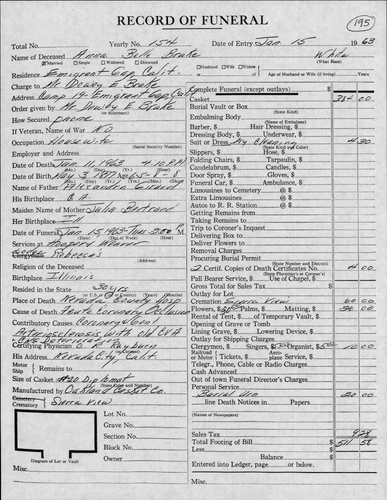 RECORD OF FUNERAL
195
Total No. Yearly No. 154 Date of Entry Jan. 15 1963
Name of Deceased Anna Bell Brake White
Married Single Widowed Divorced Husband Wife Widow (What Race)
Residence Emigrant Gap, Calif. Age of Husband or Wife (if living)
Charge to Mr. Dewey E Brake
Address Camp 19 Emigrant Gap, Calif
Order given by Mr. Dewey E Brake
How Secured phone
If Veteran, Name of War NO
Occupation Housewife
(Social Security Number)
Employer and Address
Date of Death Jan. 11, 1963 4:10 P.M.
Date of Birth May 3, 1897 Age 65-8-8
Name of Father Alexander
His Birthplace
Maiden Name of Mother Julia Bertrand
Her Birthplace Ill
Date of Funeral Jan. 15, 1963 Tues 2:00 M.
Services at
Clergyman Rebeccas
Religion of the Deceased
Birthplace Illinois
Resided in the State 30 yrs
Place of Death Nevada Hosp
Cause of Death Acute Coronary Occlusion
Contributory Causes
Arteriosclerosis with old CVA
Certifying Physician
His Address Nevada City Calif.
Motor
Ship Remains to
Size of Casket #20 Diplomat
Manufactured by Oakland Casket Co.
Cemetery
Crematory Sierra View
Lot No.
Grave No.
Section No.
Block No.
Owner
Diagram of Lot or Vault
Misc.
Complete Funeral (except outlays) $
Casket
Burial Vault or Box
(State Kind)
Embalming Body
(Name of Embalmer)
Barber, $ Hair Dressing, $
Dressing Body, $ Underwear, $
Suit or Dress Dry Cleaning 4 30
Slippers, $ Hose, $
Folding Chairs, $ Tarpaulin, $
Candelabrum, $ Candles, $
Door Spray, $ Gloves, $
Funeral Car, $ Ambulance, $
Limousines to Cemetery @ $
Extra Limousines @ $
Autos to R. R. Station @ $
Getting Remains from
Taking Remains to
Trip to Coroner's Inquest
Delivering Box to
Deliver Flowers to
Removal Charges
Procuring Burial Permit
2 Certif. Copies of Death Certificates No. 4 00
Pall Bearer Service, $ Use of Chapel, $
Gross Total for Sales Tax $
Outlay for Lot
Cremation Sierra View 60 00
Flowers, $ Palms, $ Matting, $
Rental of Tent, $ of Temporary Vault, $
Opening of Grave or Tomb
Lining Grave, $ Lowering Device, $
Outlay for Shipping Charges
Clergymen, $ Singers, $ Organist, $ 10 00
Railroad or Motor Tickets, $ Aeroplane Service, $
Telegr., Phone, Cable or Radio Charges
Cash Advanced
Out of town Funeral Director's Charges
Personal Service
Burial Urn 20 00
line Death Notices in Papers
(Names of Newspapers)
Sales Tax
Total Footing of Bill $ 511 58
Less $
Balance $
Entered into Ledger, page or below.
Misc.